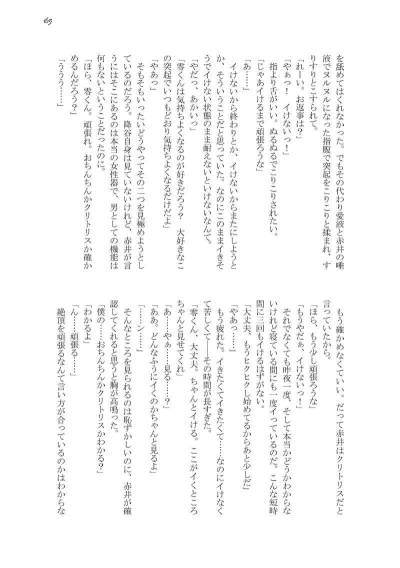 を舐めてはくれなかった。でもその代わり愛液と赤井の唾
液でヌルヌルになった指腹で突起をこりこりと揉まれ、す
りすりとこすられて。
「やぁっ！　イけないっ！」
「れーい。お返事は？」
指より舌がいい。ぬるぬるでこりこりされたい。
「じゃあイけるまで頑張ろうな」
「あ……」
イけないから終わりとか、イけないからまたにしようと
か、そういうことだと思っていた。なのにこのままイきそ
うでイけない状態のまま耐えないといけないなんて。
「やだっ、あかいっ」
「零くんは気持ちよくなるのが好きだろう？　大好きなこ
の突起でいっぱい気持ちよくなるだけだよ」
「やあっ」
そもそもいったいどうやってその二つを見極めようとし
ているのだろう。降谷自身は見ていないけれど、赤井が言
うにはそこにあるのは本当の女性器で、男としての機能は
何もないということだったのに。
「ほら、零くん。頑張れ。おちんちんかクリトリスか確か
めるんだろう？」
「ううう……」
もう確かめなくていい。だって赤井はクリトリスだと
言っていたから。
「ほら、もう少し頑張ろうな」
「もうやだぁ、イけないっ！」
それでなくても昨夜一度、そして本当かどうかわからな
いけれど寝ている間にも一度イっているのだ。こんな短時
間に三回もイけるはずがない。
「大丈夫、もうヒクヒクし始めてるからあと少しだ」
「やあっ……」
もう疲れた。イきたくてイきたくて……なのにイけなく
て苦しくて――その時間が長すぎた。
「零くん、大丈夫。ちゃんとイける。ここがイくところ
ちゃんと見せてくれ」
「あ……やぁ……見る……？」
「ああ。どんなふうにイくのかちゃんと見るよ」
「……ン……」
そんなところを見られるのは恥ずかしいのに、赤井が確
認してくれると思うと胸が高鳴った。
「僕の……おちんちんかクリトリスかわかる？」
「わかるよ」
「ん……頑張る……」
絶頂を頑張るなんて言い方が合っているのかはわからな